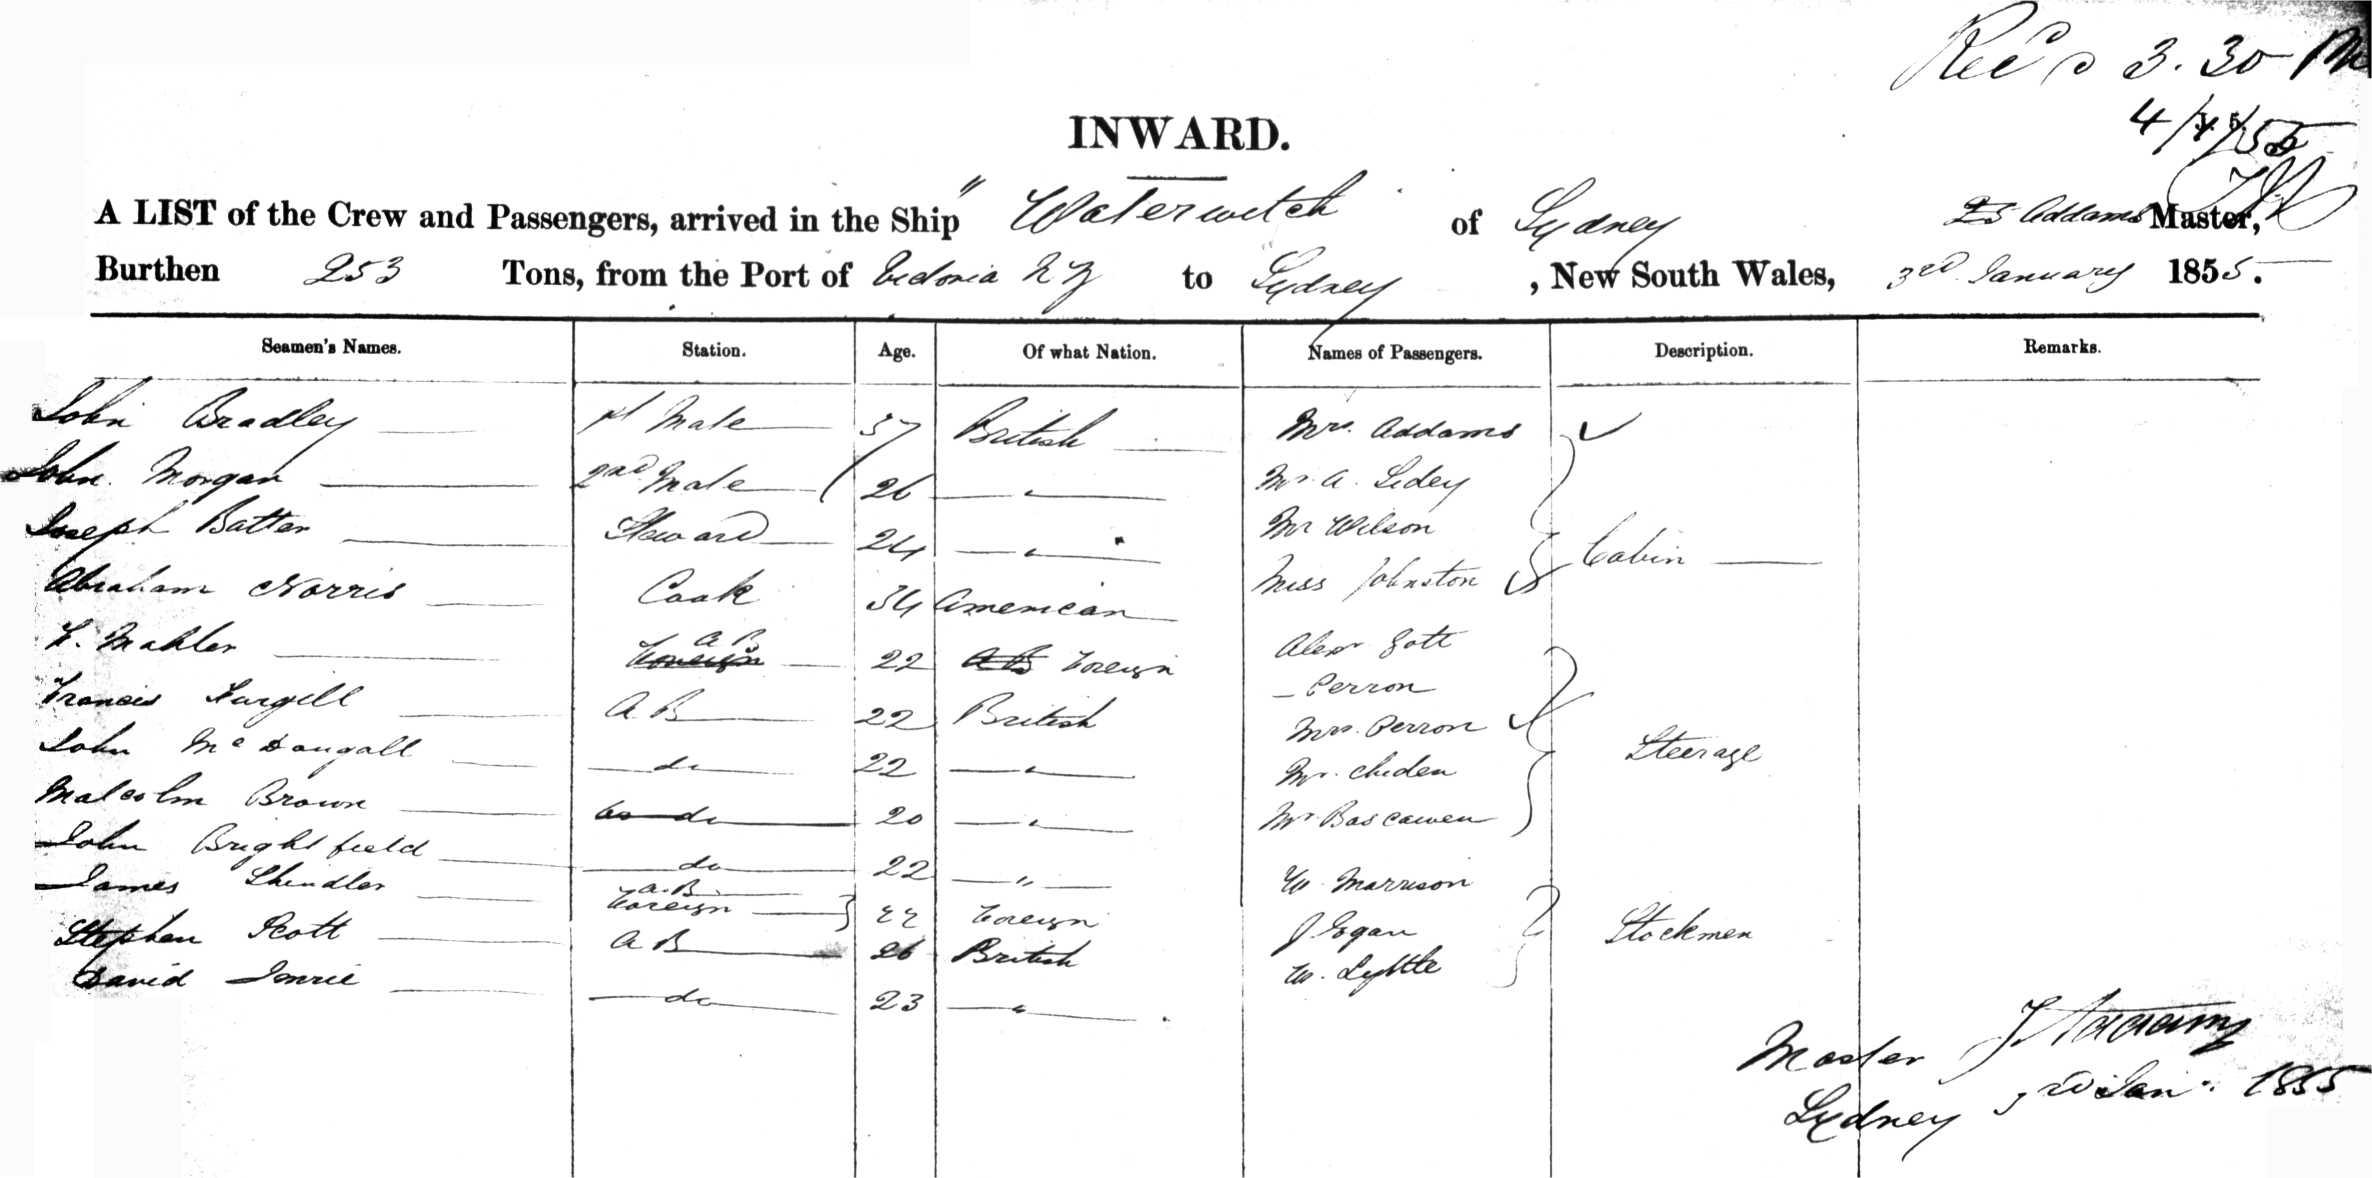 Rec'd 3.30 PM
4/1/55
INWARD.
A LIST of the Crew and Passengers, arrived in the Ship "Waterwitch of Sydney Addams Master,
Burthen 253 Tons, from the Port of N Z to Sydney, New South Wales, 3rd January 1855.
Seamen's Names. Station. Age. Of what Nation. Names of Passengers. Description. Remarks.
John Bradley 1st Mate 37 British Mrs. Addams
John Morgan 2nd Mate 26 " Mr A. Lidey
Joseph Batten Steward 24 " Mr Wilson
Cabin
Abraham Norris Cook 34 American Miss Johnston
Mahler Foreign A B 22 A B Foreign Alexr Gott
Francis Hurgill A. B 22 British - Perron
John McDougall do 22 " Mrs. Perron
Steerage
Malcolm Brown do 20 " Mr.
John Brightfield do 22 " Mr Boscawen
James Shindler A.B Foreign 22 Foreign W. Morrison
Stephen Scott A B 26 British J Egan Stockmen
David Imrie do 23 " W. Lyttle
Master
Sydney 3rd Jan. 1855